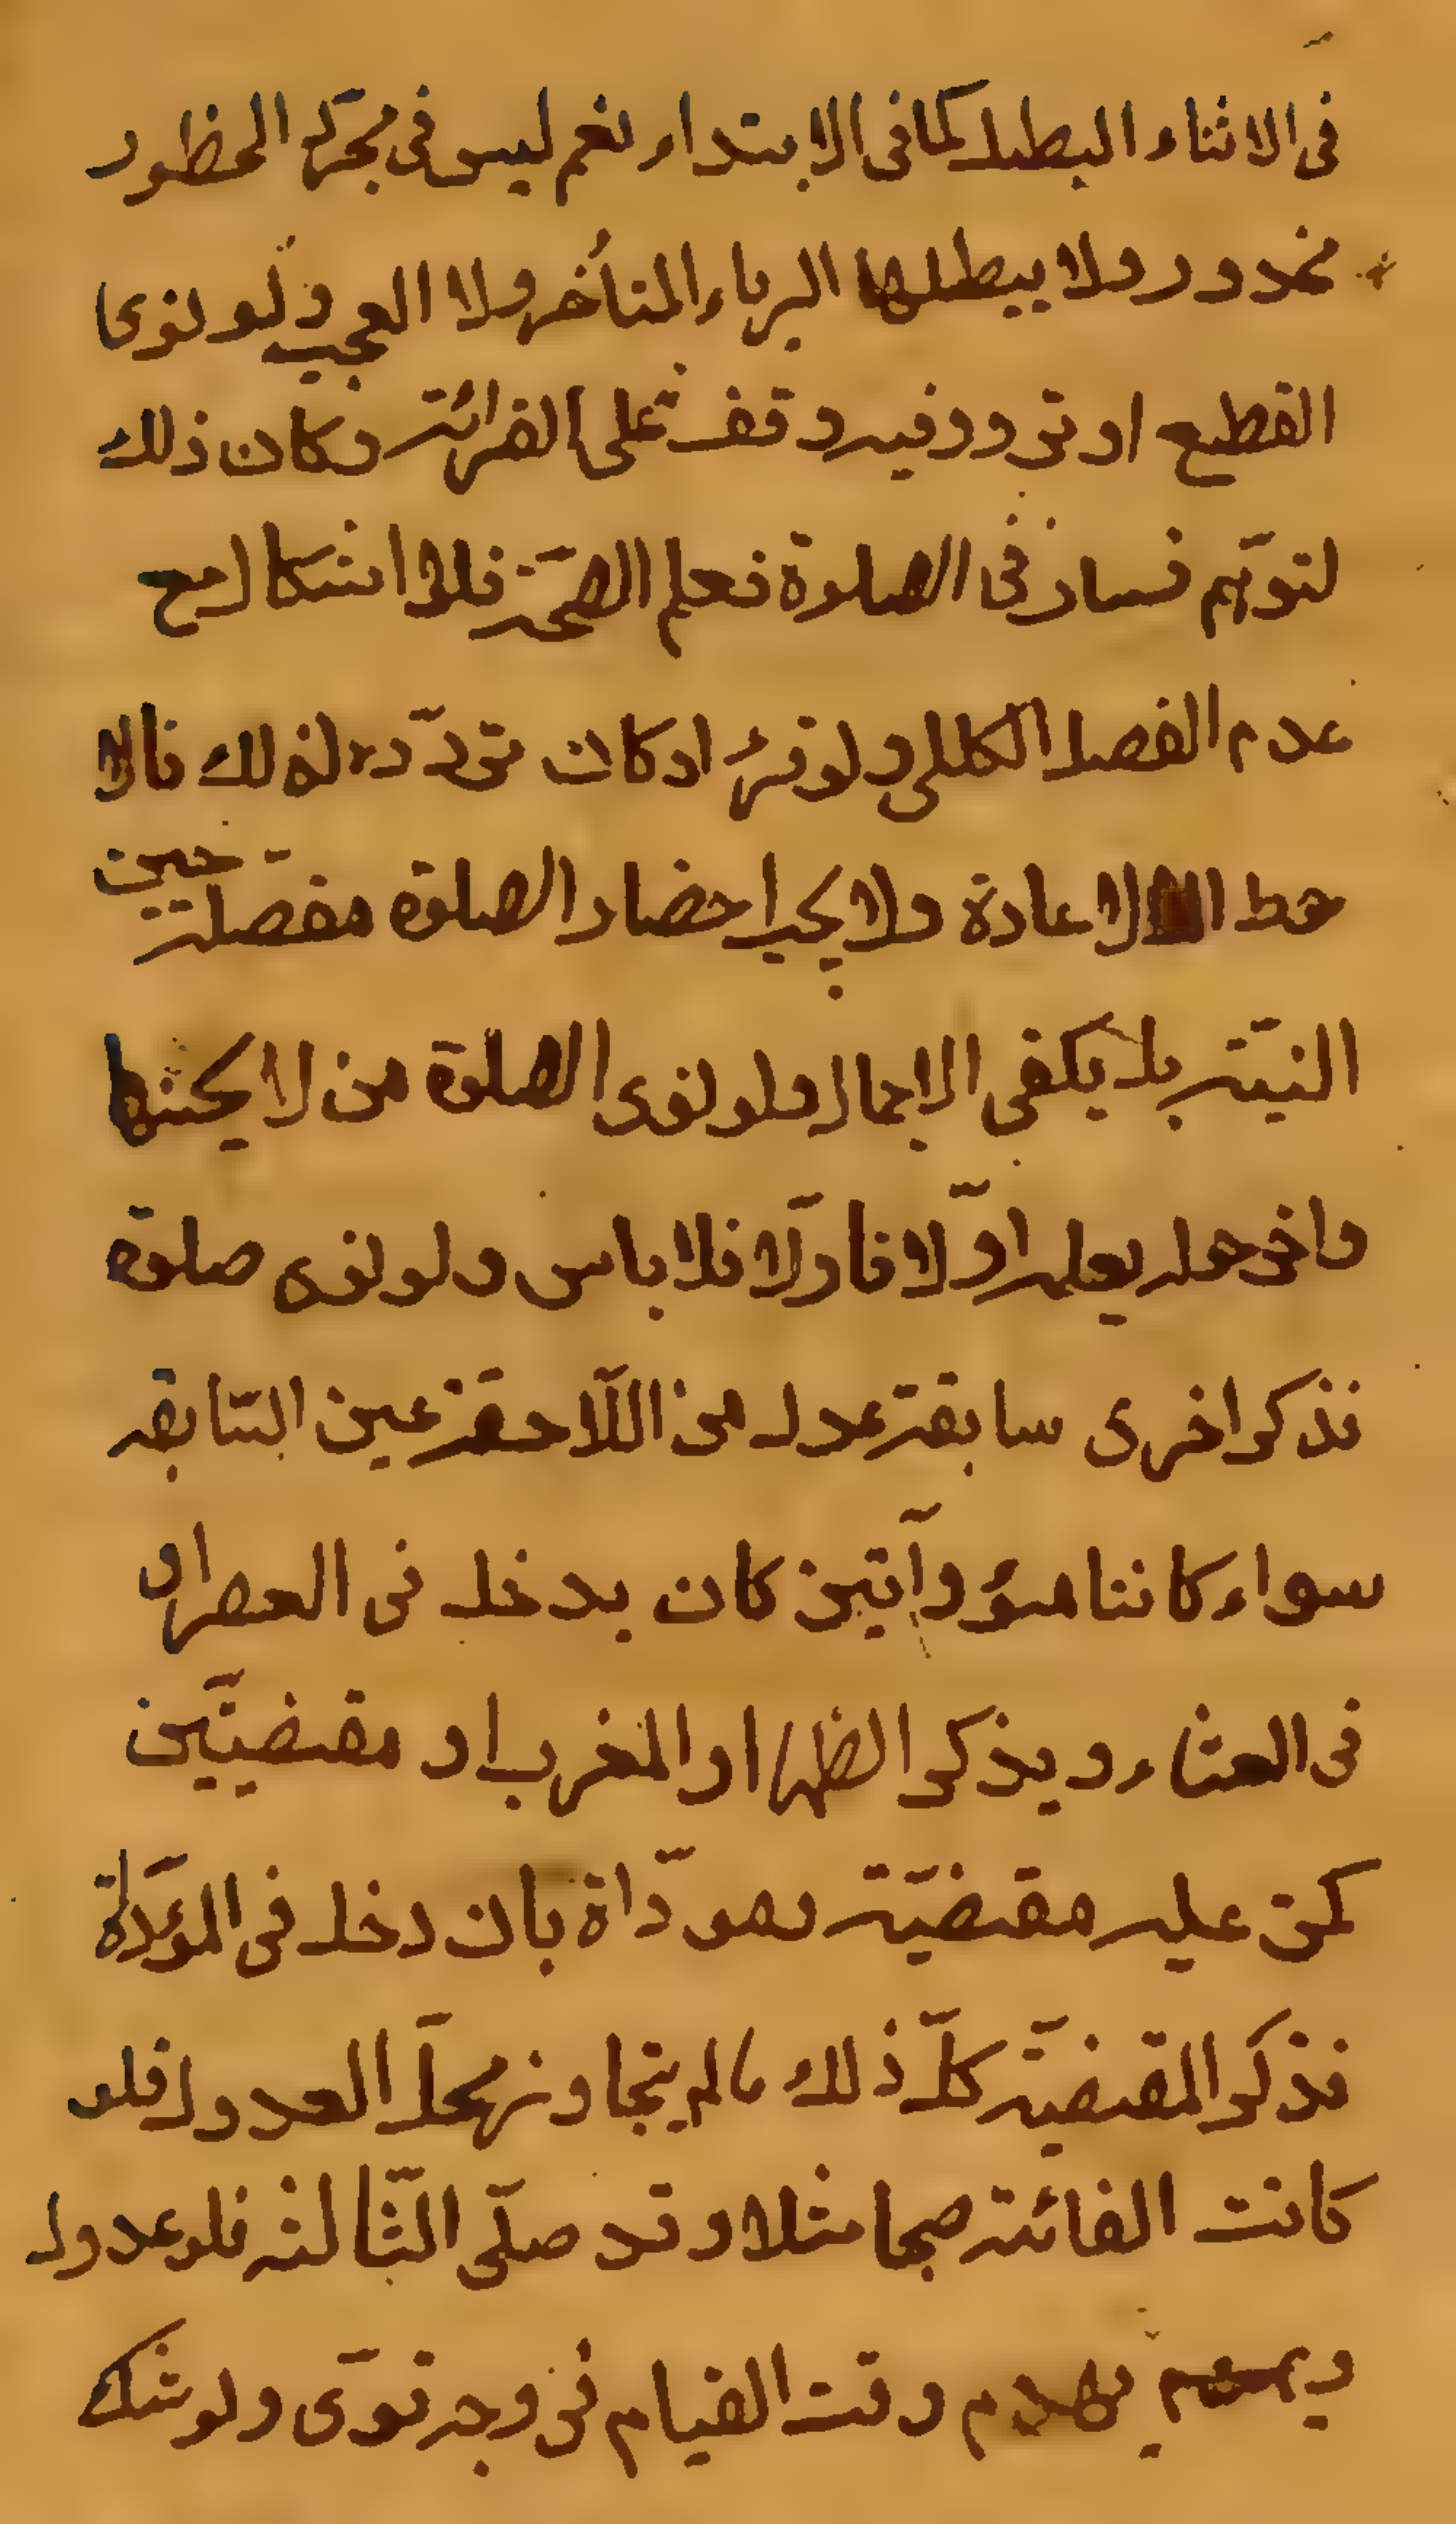 فى الاثناء البطل كما فى الابتداء نعم ليس فى مجرّد الخطور
محذور ولا يبطلها الرياء المتأخر ولا العجب ولو نوى
القطع او تردد فيه وقف على القرائة وكان ذلك
لتوهّم فساد فى الصلوة فعلم الصحّة فلا اشكال مع
عدم الفصل الكلى ولو قرء او كان تردّده لذلك فالا
حط الاعادة ولا يجب احضار الصلوة مفصّلة حين
النيّة بل يكفى الاجمال ولو نوى الصلوة من لا يحسنها
واخر هل يعلمه اوّلا فاوّلا فلا باس ولو نوى صلوة
فذكر اخرى سابقة عدل من اللّاحقة عين السّابقه
سواء كانتا مؤدّاتين كان يدخل فى العصر او
فى العشاء ويذكر الظهر او المغرب او مقضيتّين
كمن عليه مقضيّة ومودّاة بان دخل فى المؤدّاة
فذكر المقضيّة كلّ ذلك ما لم يتجاوز محلّ العدول فلو
كانت الفائتة صبحا مثلا وقد صلّى الثّالثة فلا عدول
ويهدم وقت القيام فى وجه قوّى ولو شك